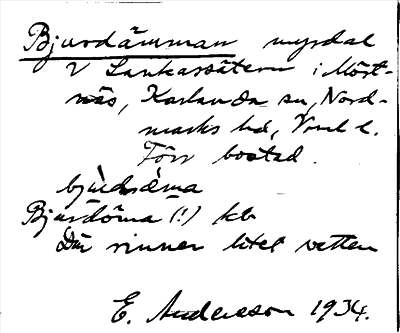 Bjurdämman myrdal
V Lankassätern i Möst-
näs, Karlanda sn, Nord-
marks hd, Vrml l.
Förr bostad.
bjùrdæ̀ma
Bjurdöma (!) kb
Där rinner litet vatten
E. Andersson 1934.